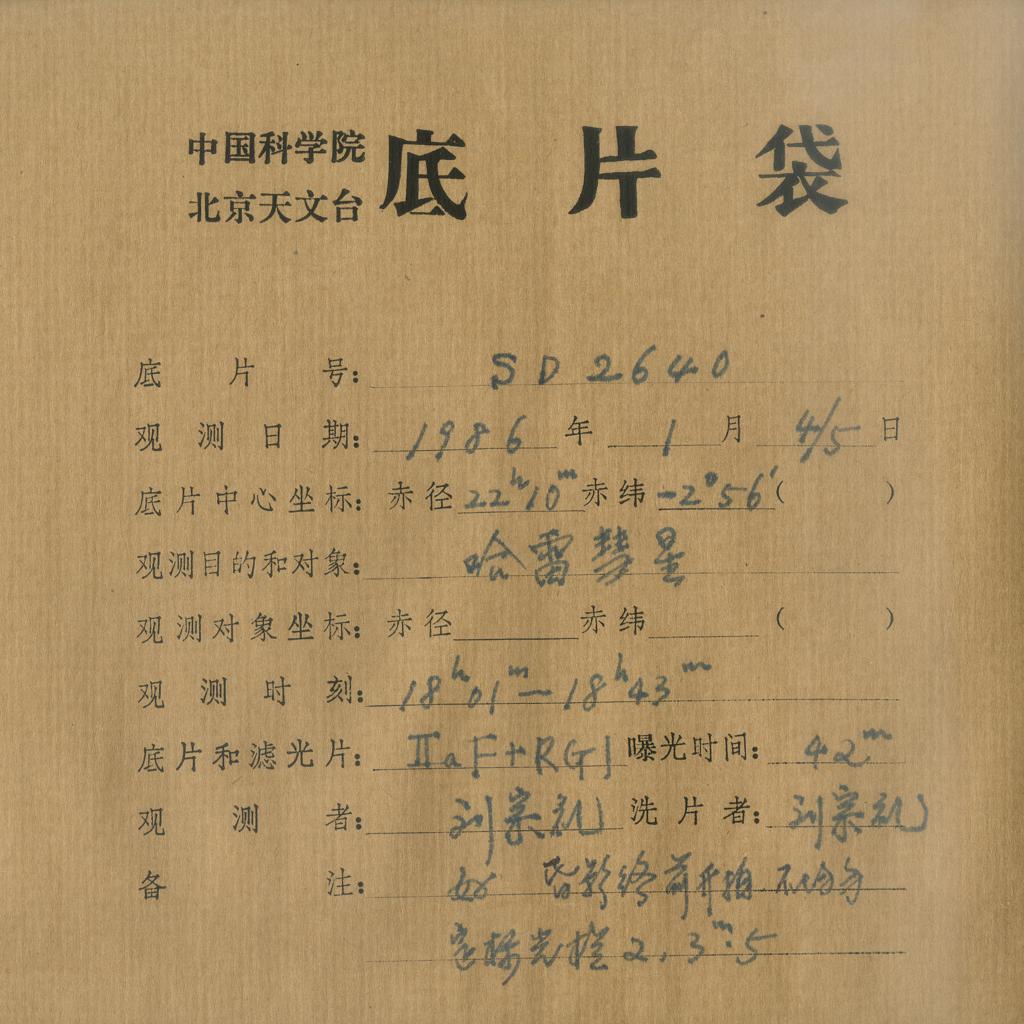 中国科学院
北京天文台
底片袋
底片号：SD2640
观测日期：1986年1月4/5日
底片中心坐标：赤径22ʰ10ᵐ赤纬-2°56′（ ）
观测目的和对象：哈雷彗星
观测对象坐标：赤径 赤纬 （ ）
观测时刻：18ʰ01ᵐ—18ʰ43ᵐ
底片和滤光片：ⅡaF+RG1 曝光时间：42ᵐ
观测者：刘宗礼 洗片者：刘宗礼
备注：好 昏影终前开拍 不均匀
定标光楔2，3ᵐ.5